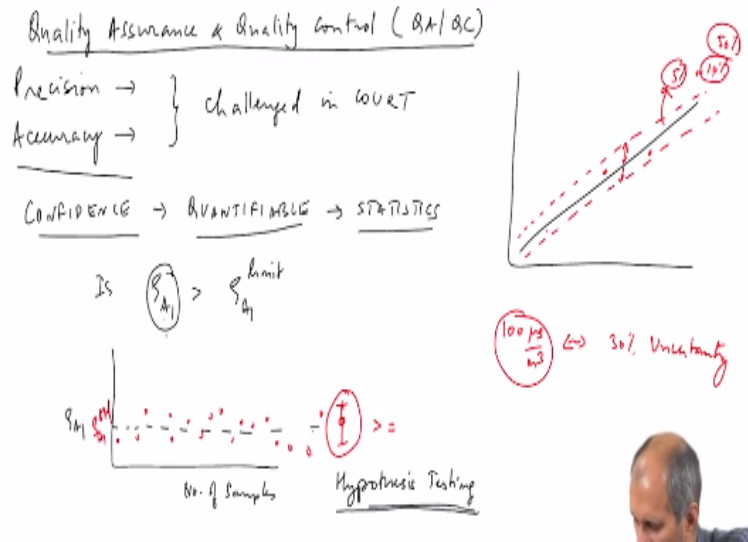 Quality Assurance & Quality Control (QA/QC)
Precision →
Accuracy →
challenged in COURT
CONFIDENCE → QUANTIFIABLE → STATISTICS
Is ρA1 > ρA1 limit
ρA1
No. of Samples
> =
Hypothesis Testing
5%
10%
50%
100 μg/m3 ↔ 30% Uncertainty